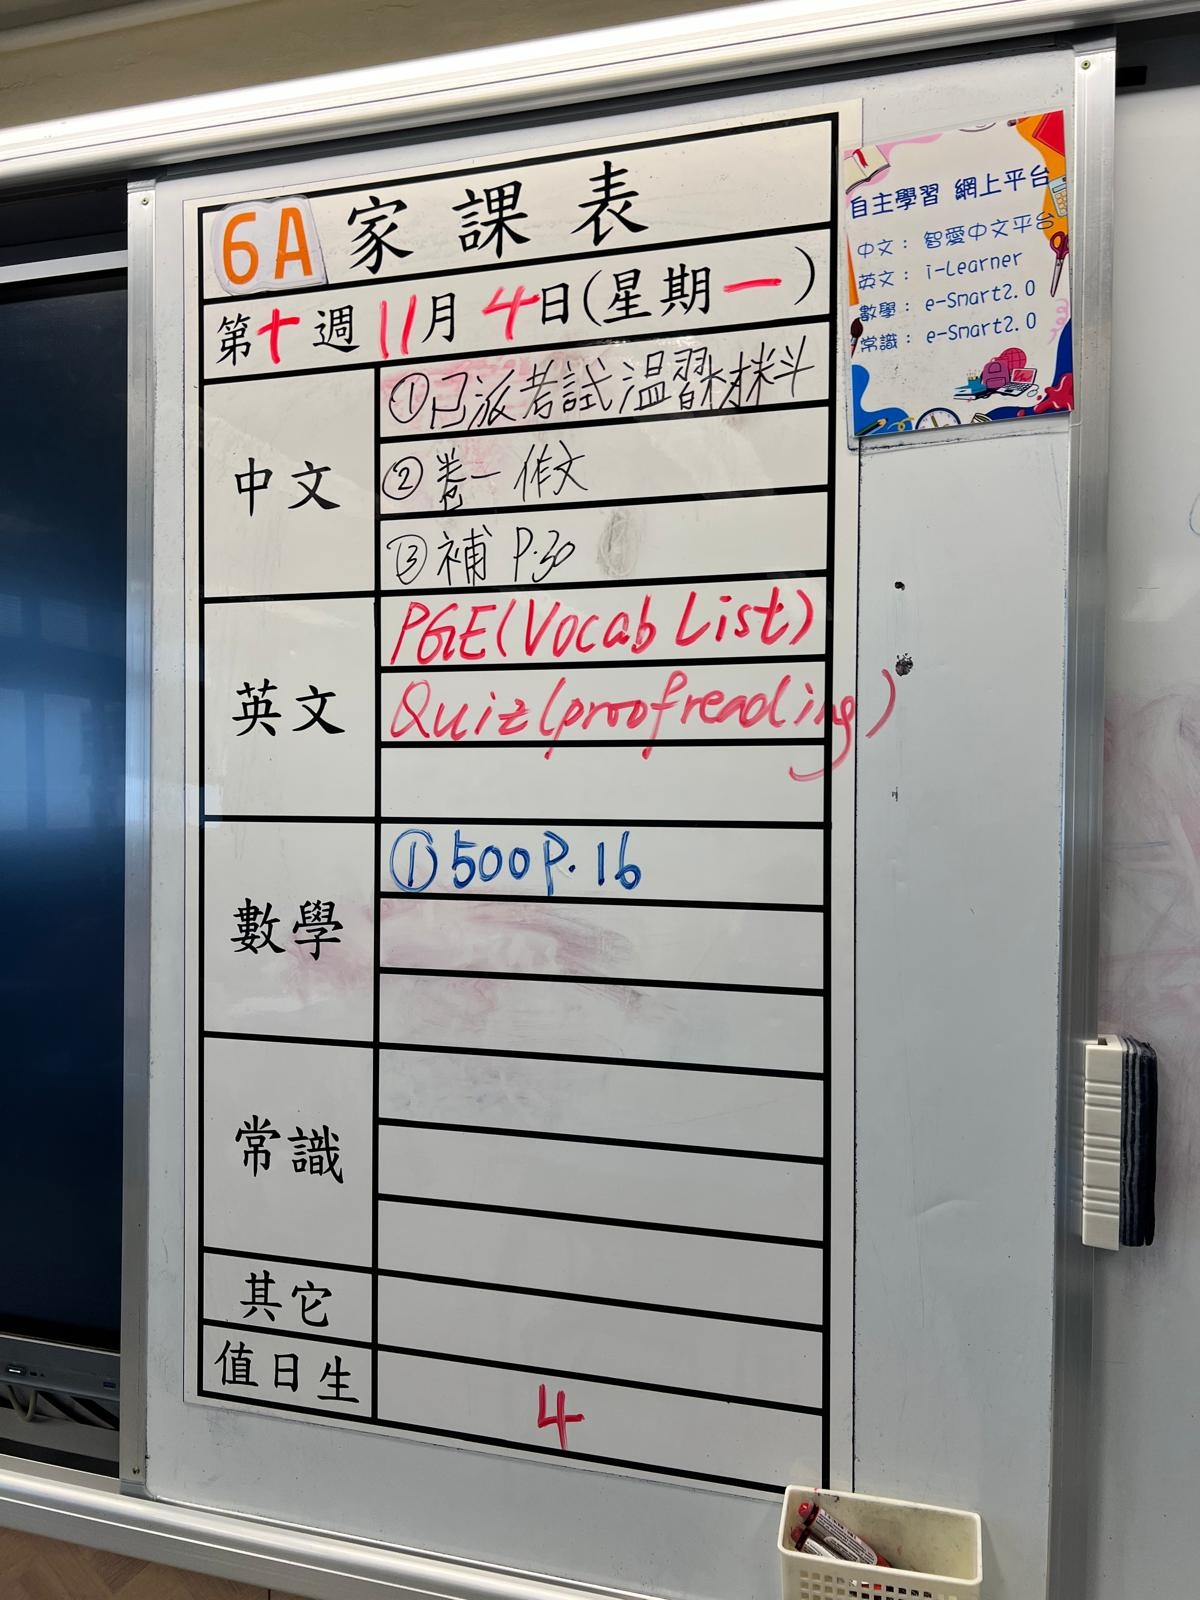 6A 家課表
第十週 11月 4日(星期一)
中文
①已派考試溫習材料
②卷一 作文
③補 P.30
英文
PGE(Vocab List)
Quiz(proofreading)
數學
①500 P.16
常識
其它
值日生
4
自主學習 網上平台
中文： 智愛中文平台
英文： i-Learner
數學： e-Smart2.0
常識： e-Smart2.0